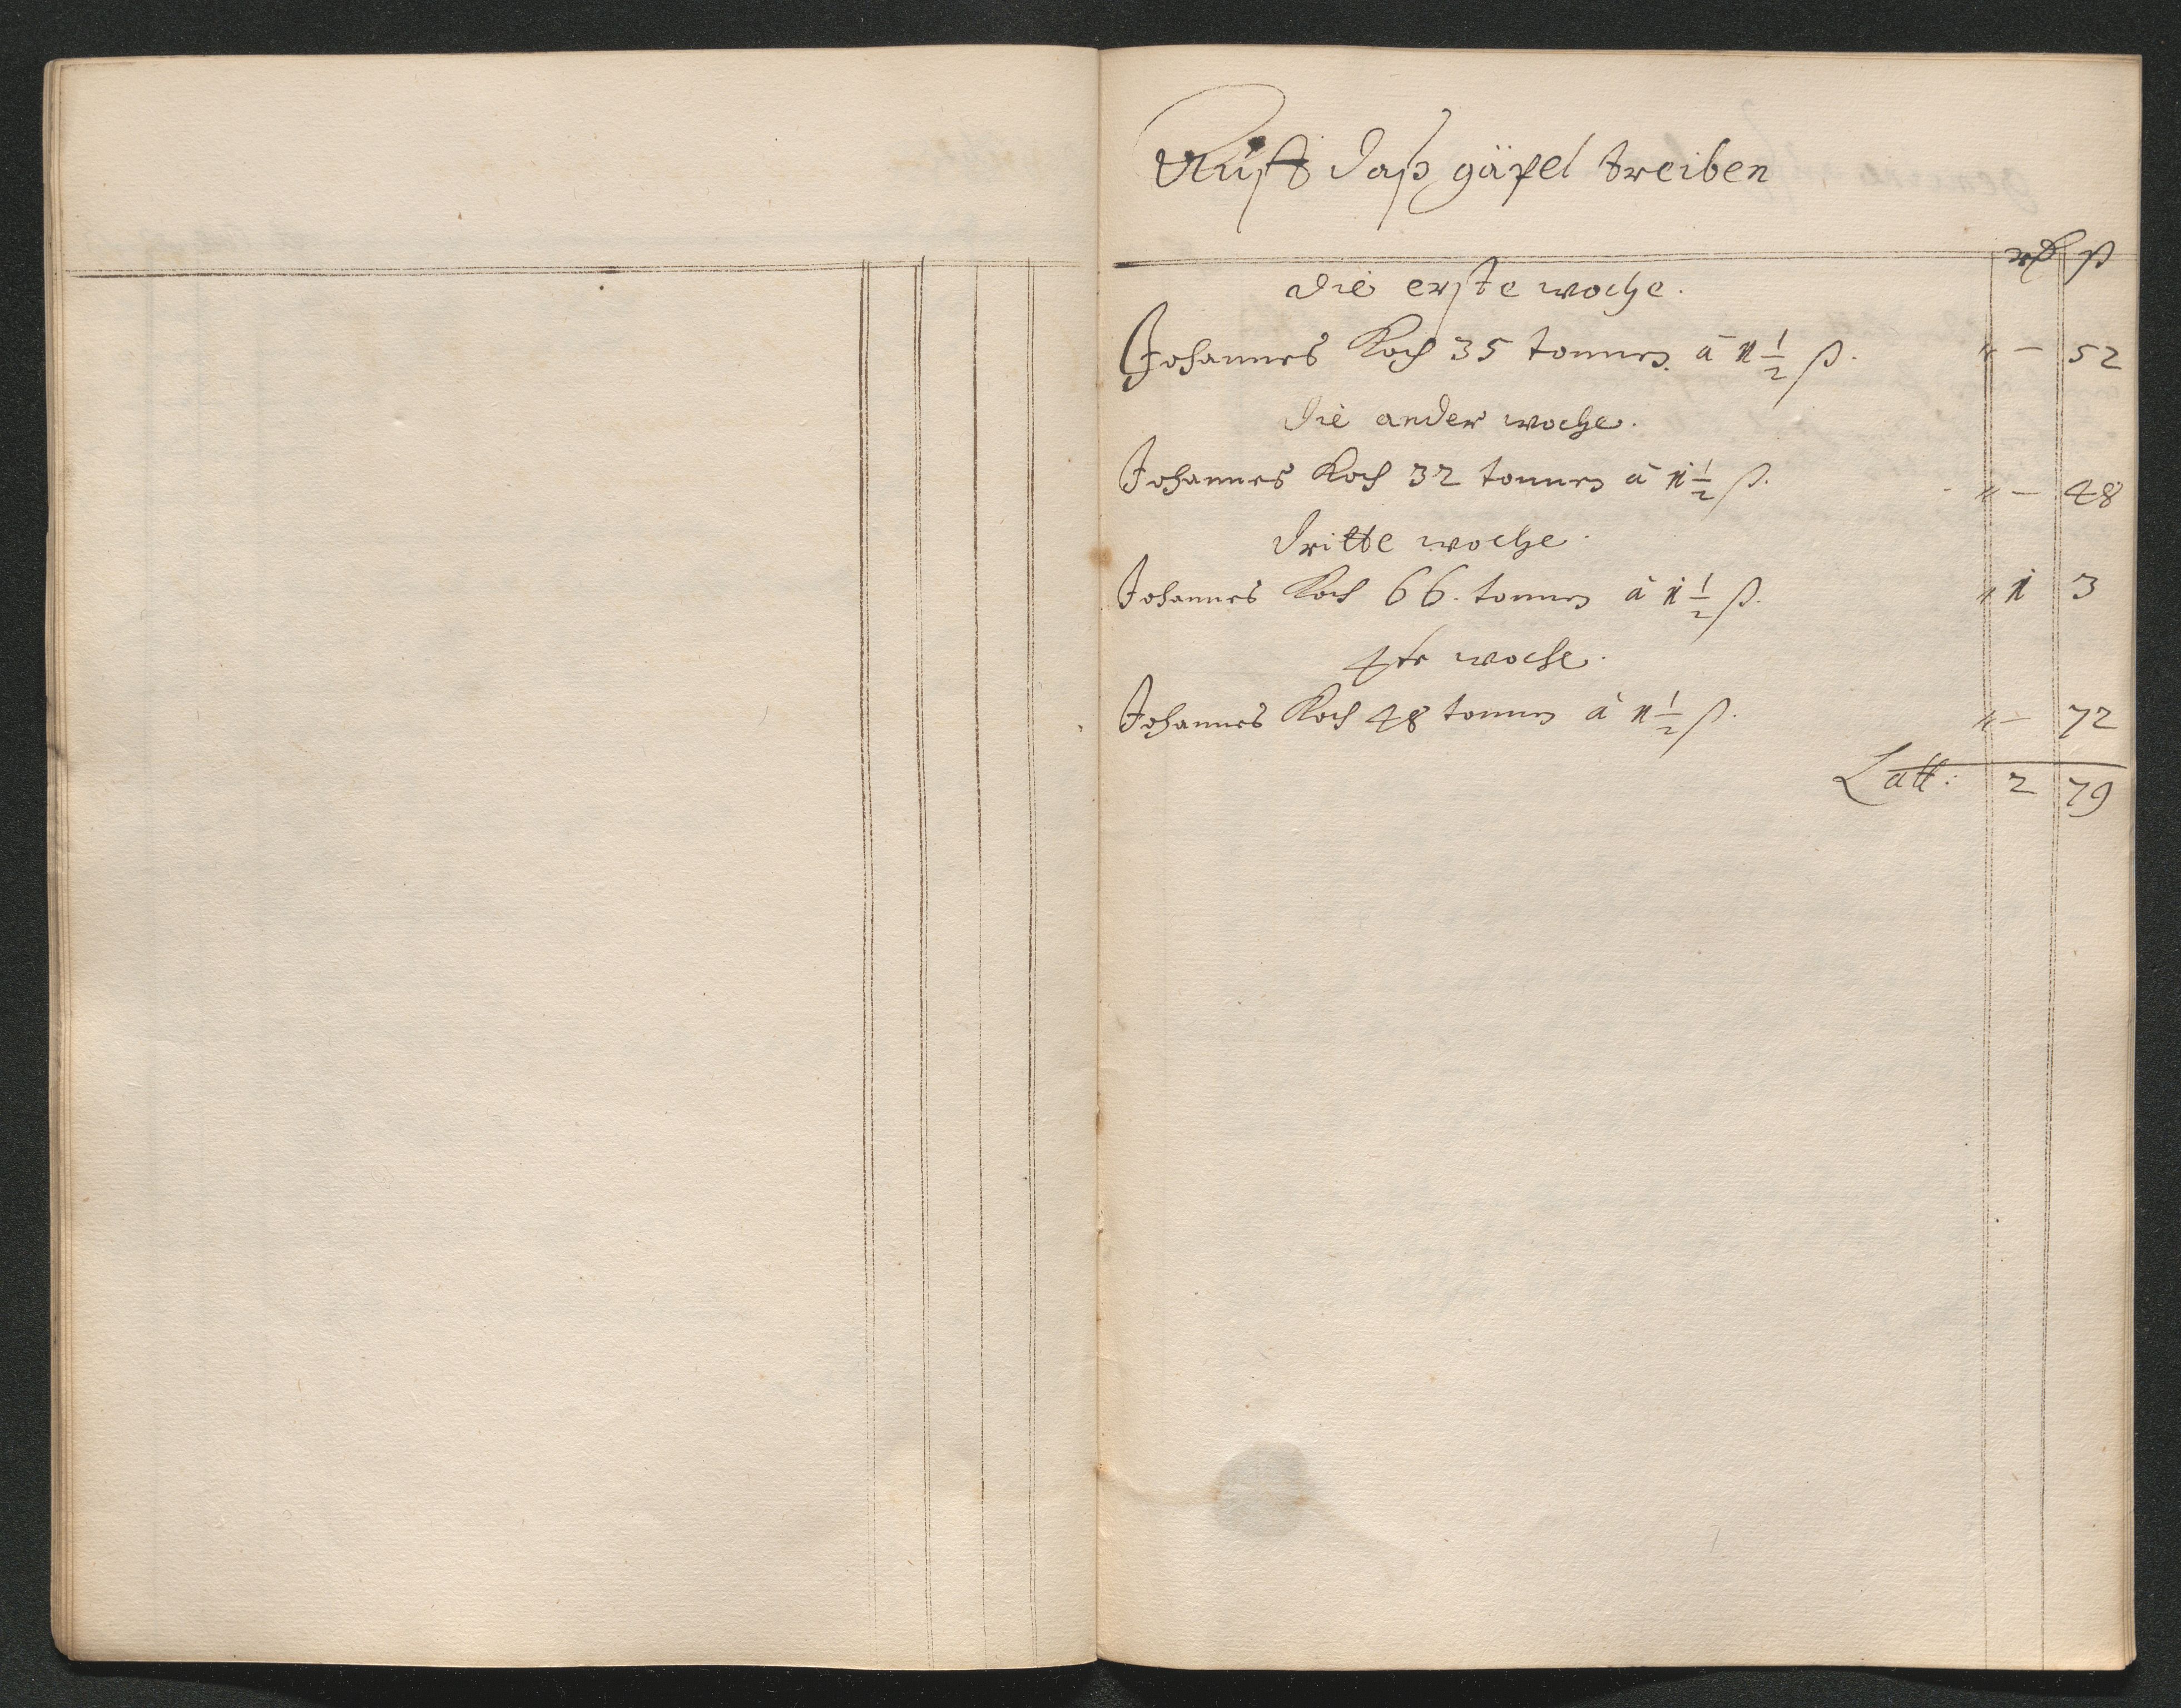 Auff daß gäpel treiben
rth ß
die erste woche.
Johannes Koch 35 tonnen à 1 1/2 ß. " — 52
die ander woche.
Johannes Koch 32 tonnen à 1 1/2 ß. " — 48
dritte woche.
Johannes Koch 66. tonnen à 1 1/2 ß. " 1 3
4te woche.
Johannes Koch 48 tonnen à 1 1/2 ß. " — 72
Latt: 2 79